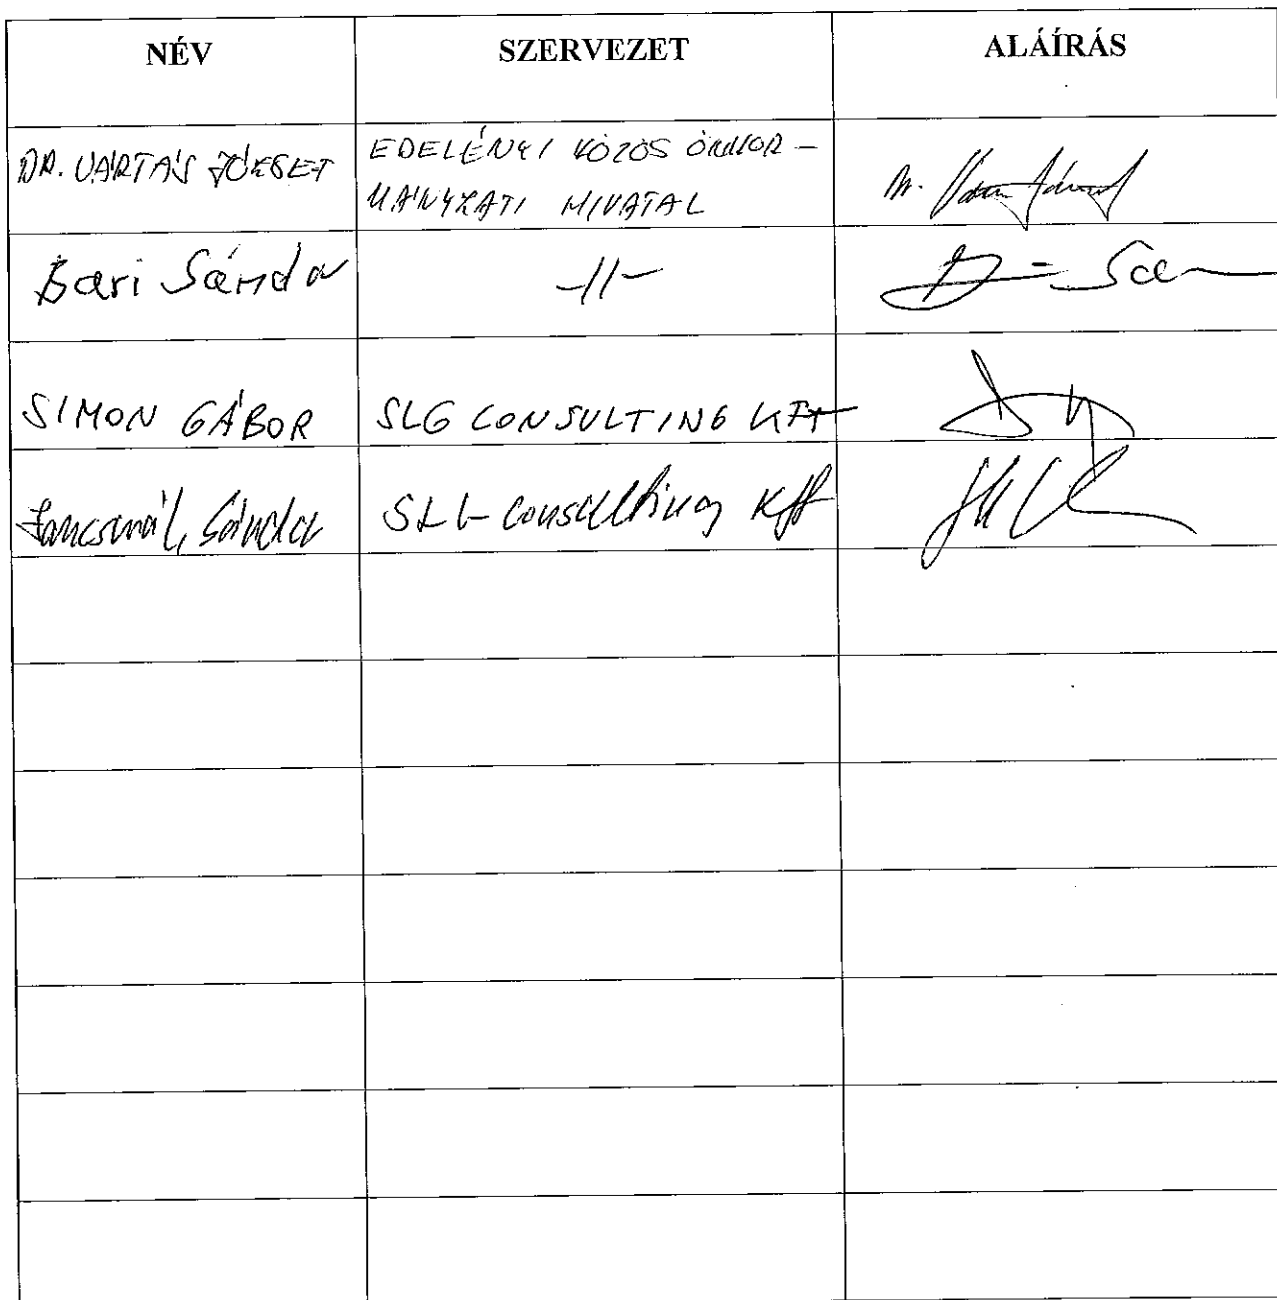 NÉV SZERVEZET ALÁÍRÁS
DR. VÁRTÁS JÓZSEF EDELÉNYI KÖZÖS ÖNKOR-
MÁNYZATI HIVATAL
Bari Sándor -//-
SIMON GÁBOR SLG CONSULTING KFT
Sándor Consulting Kft